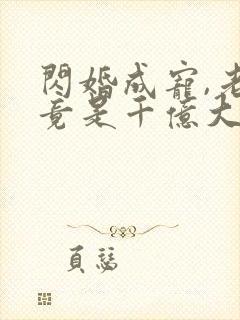 閃婚成寵,老
竟是千億大
頁